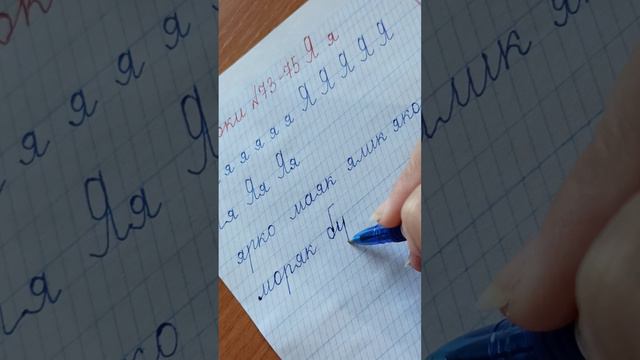 оки №73-75 Я я
я я я я я Я Я Я Я Я
я Яя Яя
ярко маяк ямк яко
моряк бу